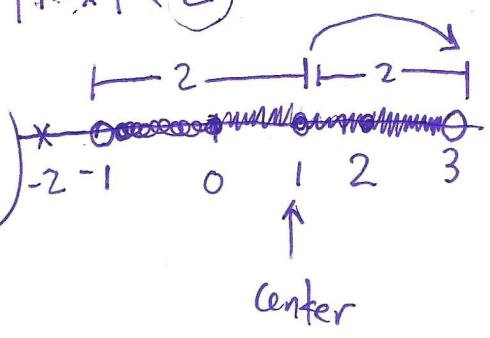 2 2
-2 -1 0 1 2 3
center